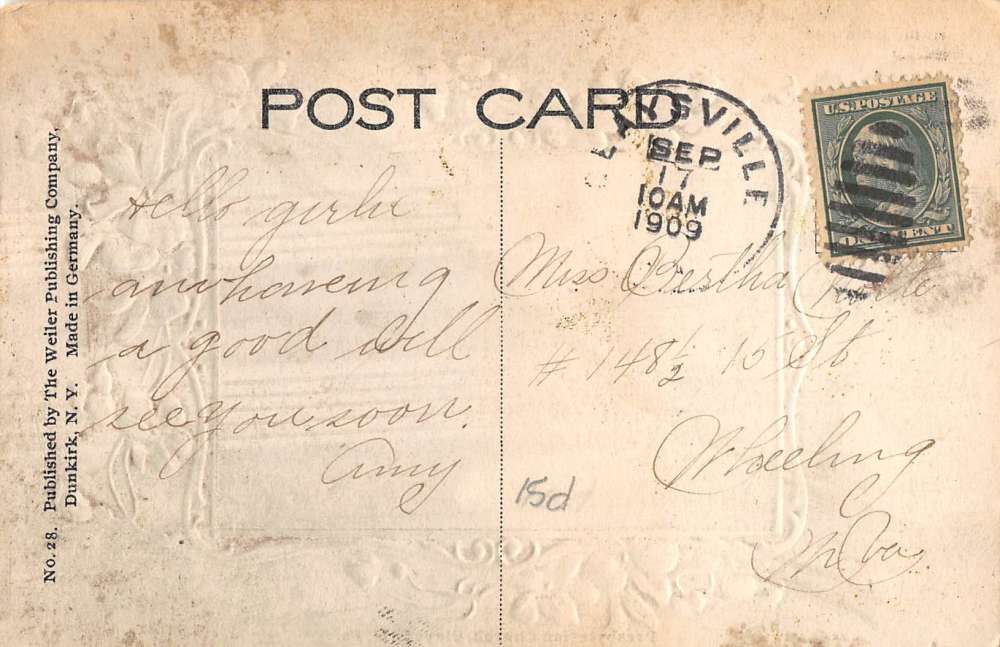 POST CARD
No. 28. Published by The Weiler Publishing Company,
Dunkirk, N. Y. Made in Germany.
SVILLE
SEP
17
10 AM
1909
U.S. POSTAGE
ONE CENT
Hello girlie
am haveing
a good will
see you soon.
Amy
Miss Bertha
# 148½ 10 St
Wheeling
W Va
15d